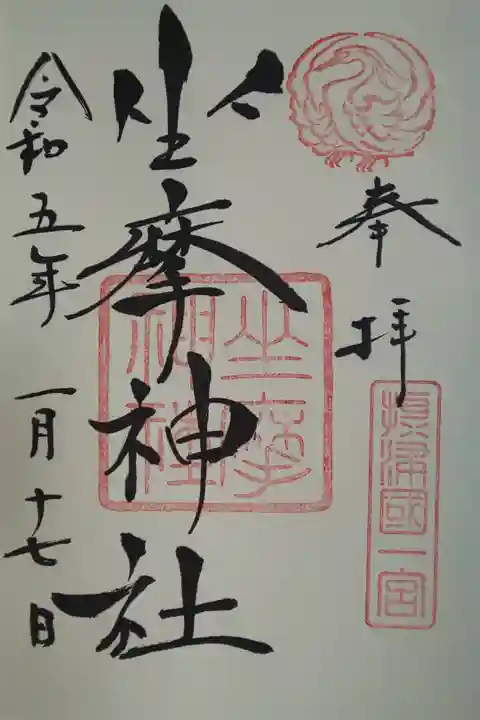 奉拝
摂津國一宮
坐摩神社
坐摩
神社
令和五年一月十七日